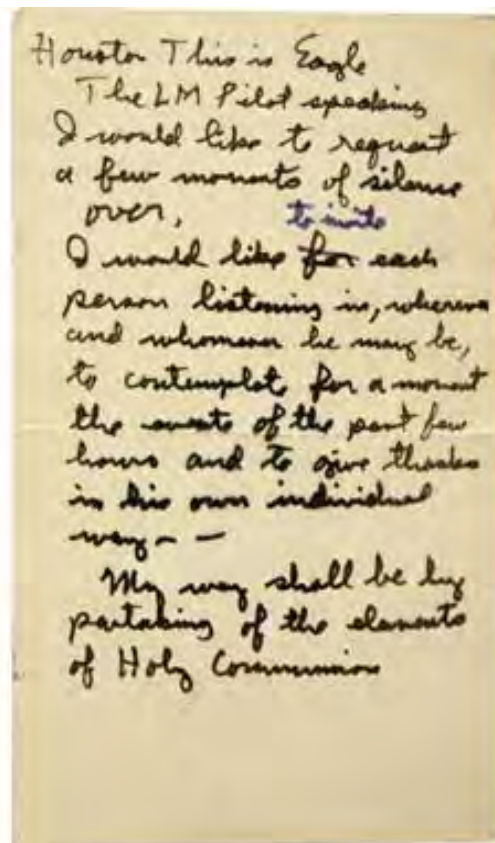 Houston This is Eagle
The LM Pilot speaking
I would like to request
a few moments of silence
over,
to invite
I would like for each
person listening in, wherever
and whomever he may be,
to contemplate for a moment
the events of the past few
hours and to give thanks
in his own individual
way - -
My way shall be by
partaking of the elements
of Holy Communion